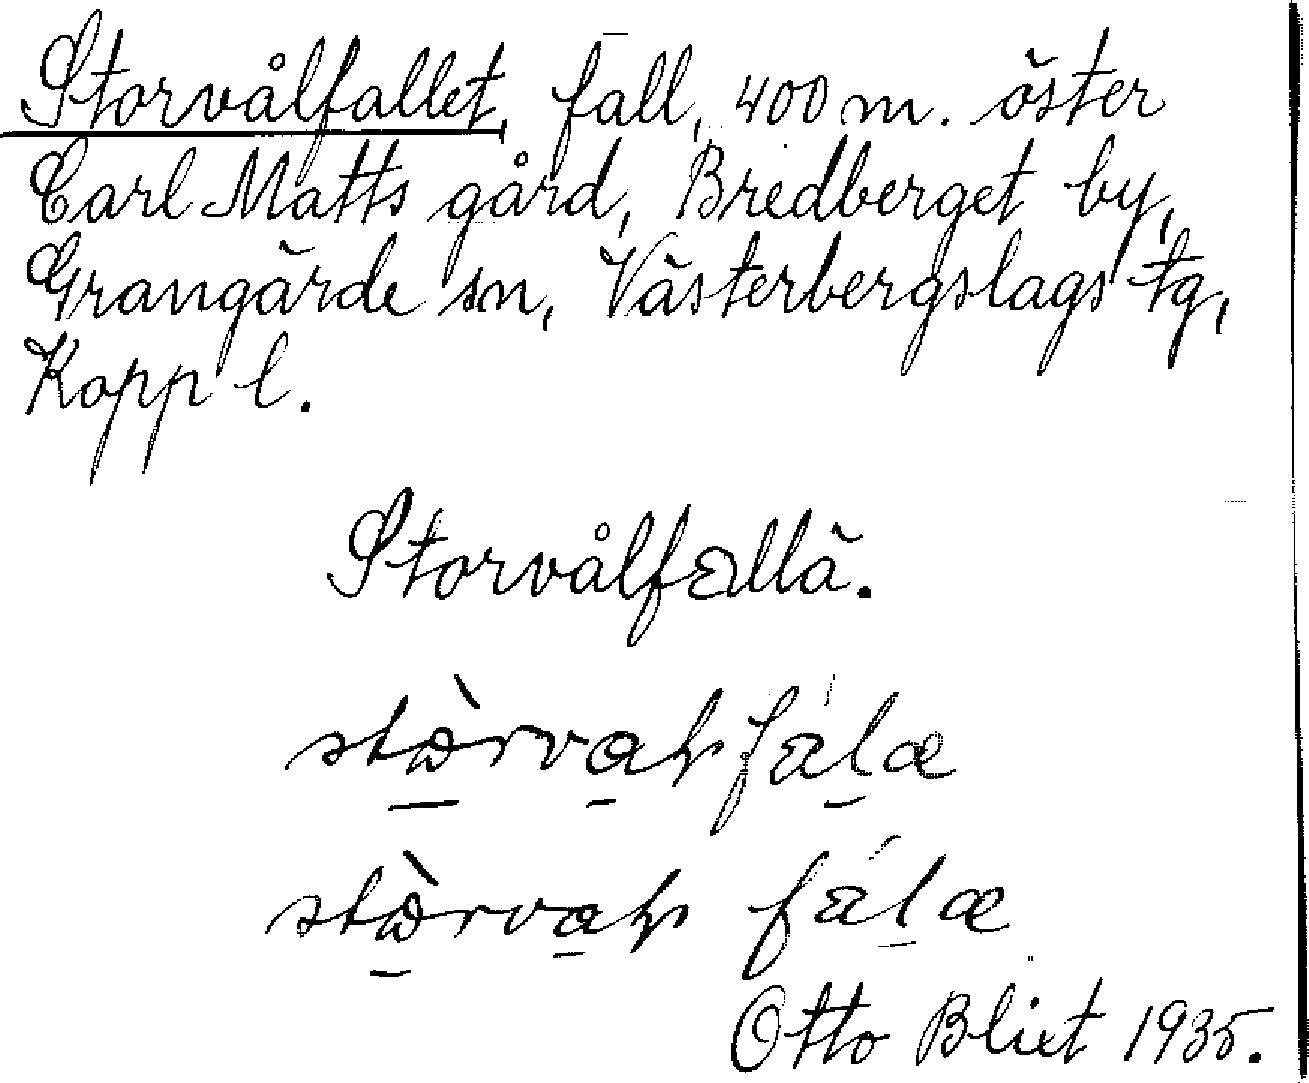 Storvålfallet, fall, 400 m. öster
Carl Matts gård, Bredberget by,
Grangärde sn, Västerbergslags tg,
Kopp l.
Storvålfallä.
Otto Blixt 1935.